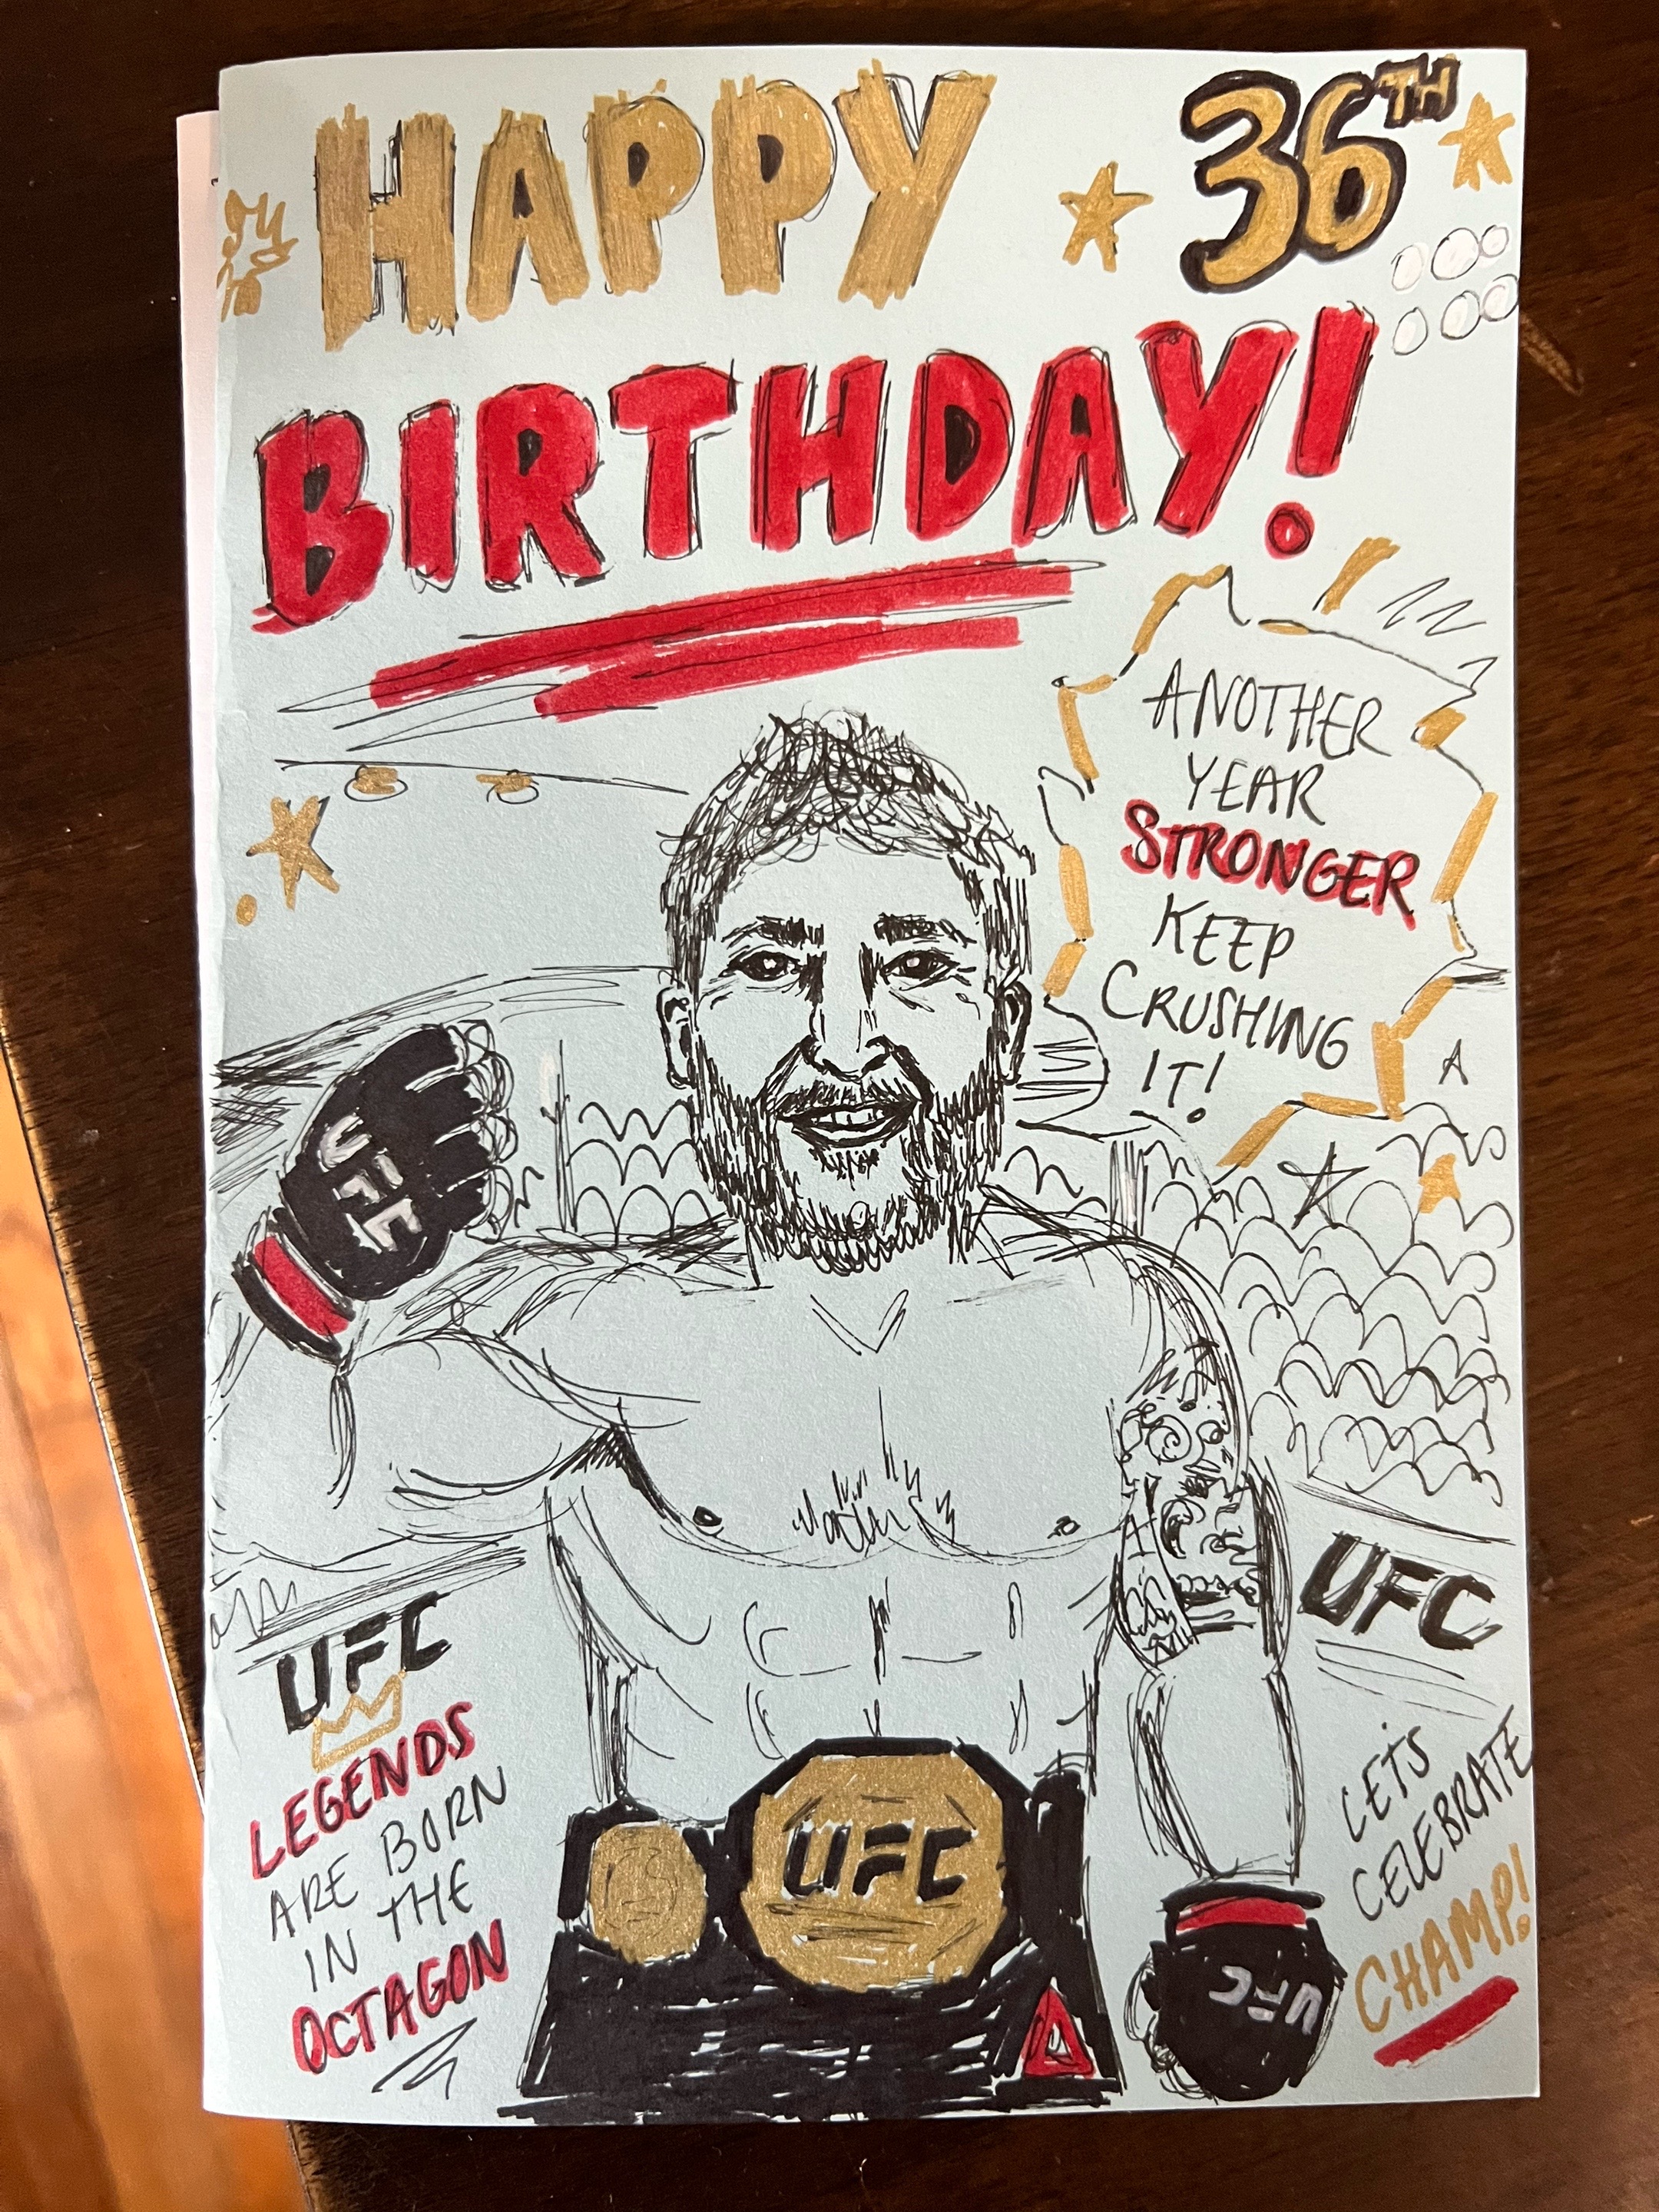 HAPPY
36TH
BIRTHDAY!
ANOTHER
YEAR
STRONGER
KEEP
CRUSHING
IT!
UFC
UFC
UFC
LEGENDS
ARE BORN
IN THE
OCTAGON
UFC
LET'S
CELEBRATE
CHAMP!
UFC